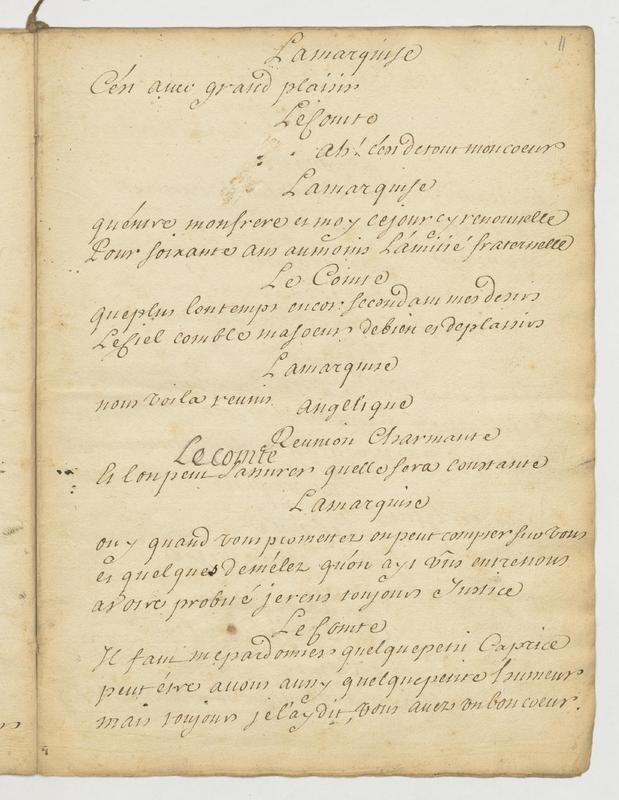 11
Lamarquise
C'est avec grand plaisir
Le Comte
Ah! c'est detout moncoeur
Lamarquise
qu'entre monfrere et moy cejour cy renouvelle
Pour soixante ans aumoins l'amitié fraternelle
Le Comte
queplus lontemps encor secondant mes desirs
Le Ciel comble masoeur debien et deplaisirs
Lamarquise
nous voila reunis
angelique
Reunion Charmante
Lecomte
Et lonpeut s'assurer quelle sera constante
Lamarquise
ouy quand vous promettez onpeut compter sur vous
et quelques demélez qu'on ayt vûs entrenous
avotre probité jerens toujours Justice
Le Comte
Il faut mepardonner quelquepetit Caprice
peut étre avons aussy quelquepetite humeur
mais toujours je l'ay dit, vous avez un bon coeur.